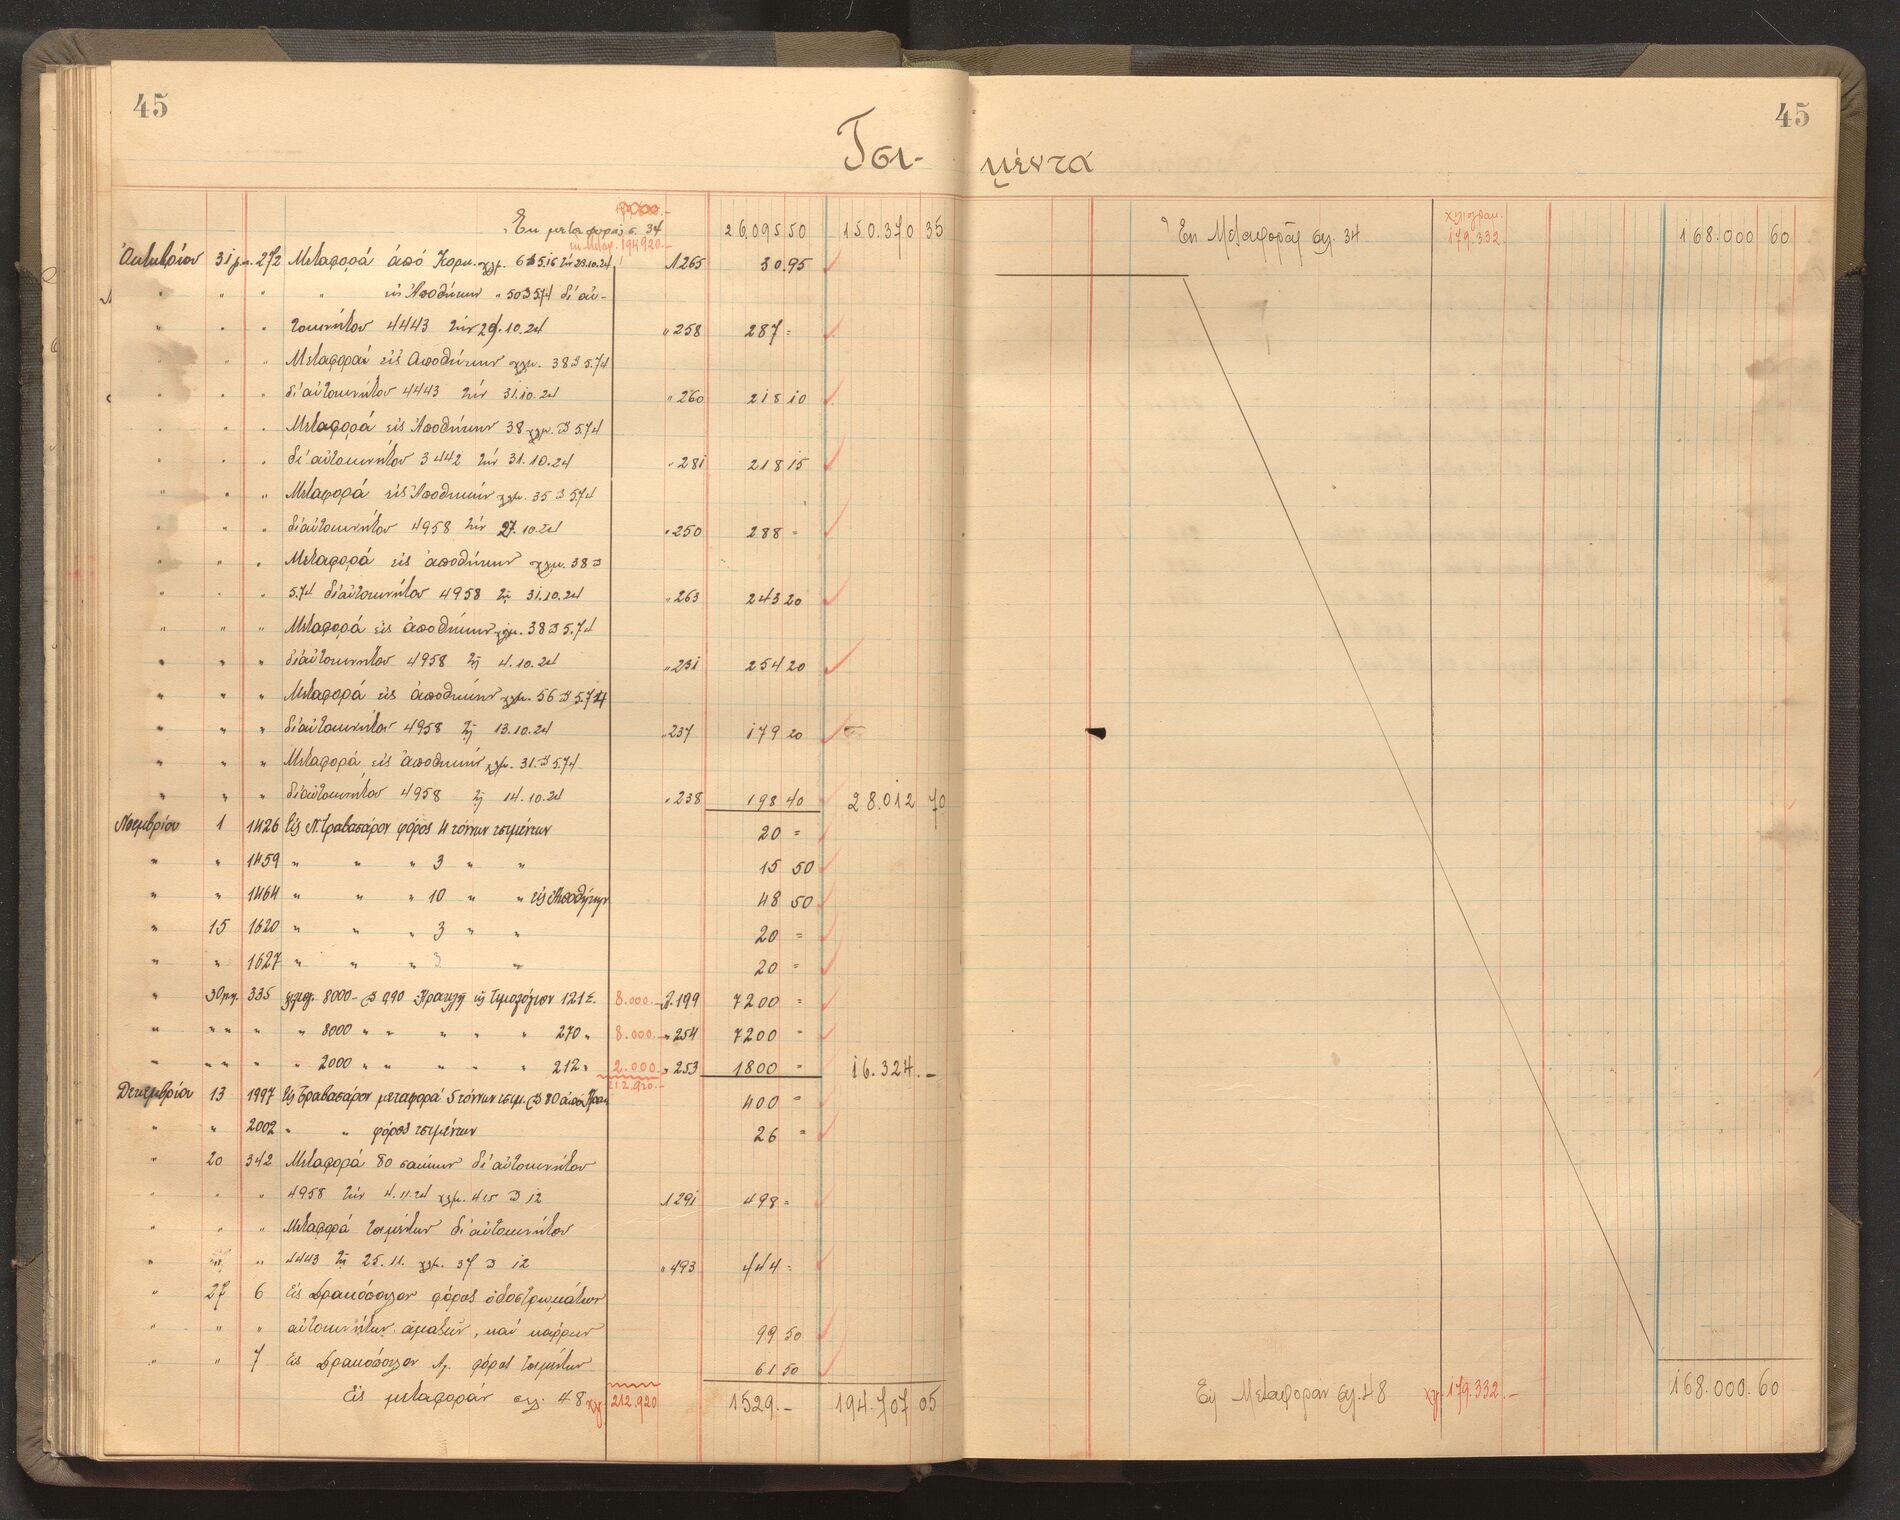 45
45
Τσι- μέντα
Ἐκ μεταφορᾶς σ. 34 26095 50 150.370 35
ἐκ Μεταφ. 194920.-
Ὀκτωβρίου 31 272 Μεταφορά ἀπό 6 5.16 τήν 23.10.24 1265 30.95
" " " " εἰς Ἀποθήκην " 50 5.74 δι' αὐ-
" " " τοκινήτου 4443 τήν 29.10.24 " 258 287 =
" " " Μεταφορά εἰς Ἀποθήκην χλμ. 38 5.74
" " " δι' αὐτοκινήτου 4443 τήν 31.10.24 " 260 218 10
" " " Μεταφορά εἰς Ἀποθήκην 38 χλμ. 5.74
" " " δι' αὐτοκινήτου 3442 τήν 31.10.24 " 281 218 15
" " " Μεταφορά εἰς Ἀποθήκην χλμ. 35 5.74
" " " δι' αὐτοκινήτου 4958 τήν 27.10.24 " 250 288 =
" " " Μεταφορά εἰς ἀποθήκην χλμ. 38
" " " 5.74 δι' αὐτοκινήτου 4958 τῇ 31.10.24 " 263 243 20
" " " Μεταφορά εἰς ἀποθήκην χλμ. 38 5.74
" " " δι' αὐτοκινήτου 4958 τῇ 4.10.24 " 231 254 20
" " " Μεταφορά εἰς ἀποθήκην χλμ. 56 5.74
" " " δι' αὐτοκινήτου 4958 τῇ 13.10.24 " 237 179 20
" " " Μεταφορά εἰς ἀποθήκην χλμ. 31 5.74
" " " δι' αὐτοκινήτου 4958 τῇ 14.10.24 " 238 198 40 28.012 70
Νοεμβρίου 1 1426 Εἰς Ν. Τραβασάρον φόρος 4 τόννων τσιμέντων 20 =
" " 1459 " " " 3 " " 15 50
" " 1464 " " " 10 " " εἰς Ἀποθήκην 48 50
" 15 1620 " " " 3 " " 20 =
" " 1627 " " " 3 " 20 =
" 30 335 χλγρ. 8000 - 0.90 Τιμολόγιον 121 8.000.- 199 7200 =
" " " " " 8000 " " " " " 270 " 8.000.- " 254 7200 =
" " " " " 2000 " " " " " 212 " 2.000 " 253 1800 = 16.324.-
212.920.-
Δεκεμβρίου 13 1997 Εἰς Τραβασάρον μεταφορά 5 τόννων τσιμ. 80 ἀπό 400 =
" " 2002 " " φόρος τσιμέντων 26 =
" 20 342 Μεταφορά 80 σάκκων δι' αὐτοκινήτου
" " " 4958 τήν 4.11.24 χλμ. 12 1291 498 =
" " " Μεταφορά τσιμέντων δι' αὐτοκινήτου
" " " 4443 τῇ 25.11. χλμ. 37 12 " 493 444 =
" 27 6 Εἰς Δρακόπουλον φόρος ὁδοστρωμάτων
" " " αὐτοκινήτων ἁμαξῶν, καί κάρρων 99 50
" " 7 Εἰς Δρακόπουλον φόρος τσιμέντων 61 50
Εἰς μεταφοράν σελ. 48 χγ. 212.920 1529.- 194.707 05
Ἐκ Μεταφορᾶς σελ. 34 χιλιόγραμ. 179.332 168.000 60
Εἰς Μεταφοράν σελ. 48 χγ. 179.332.- 168.000.60